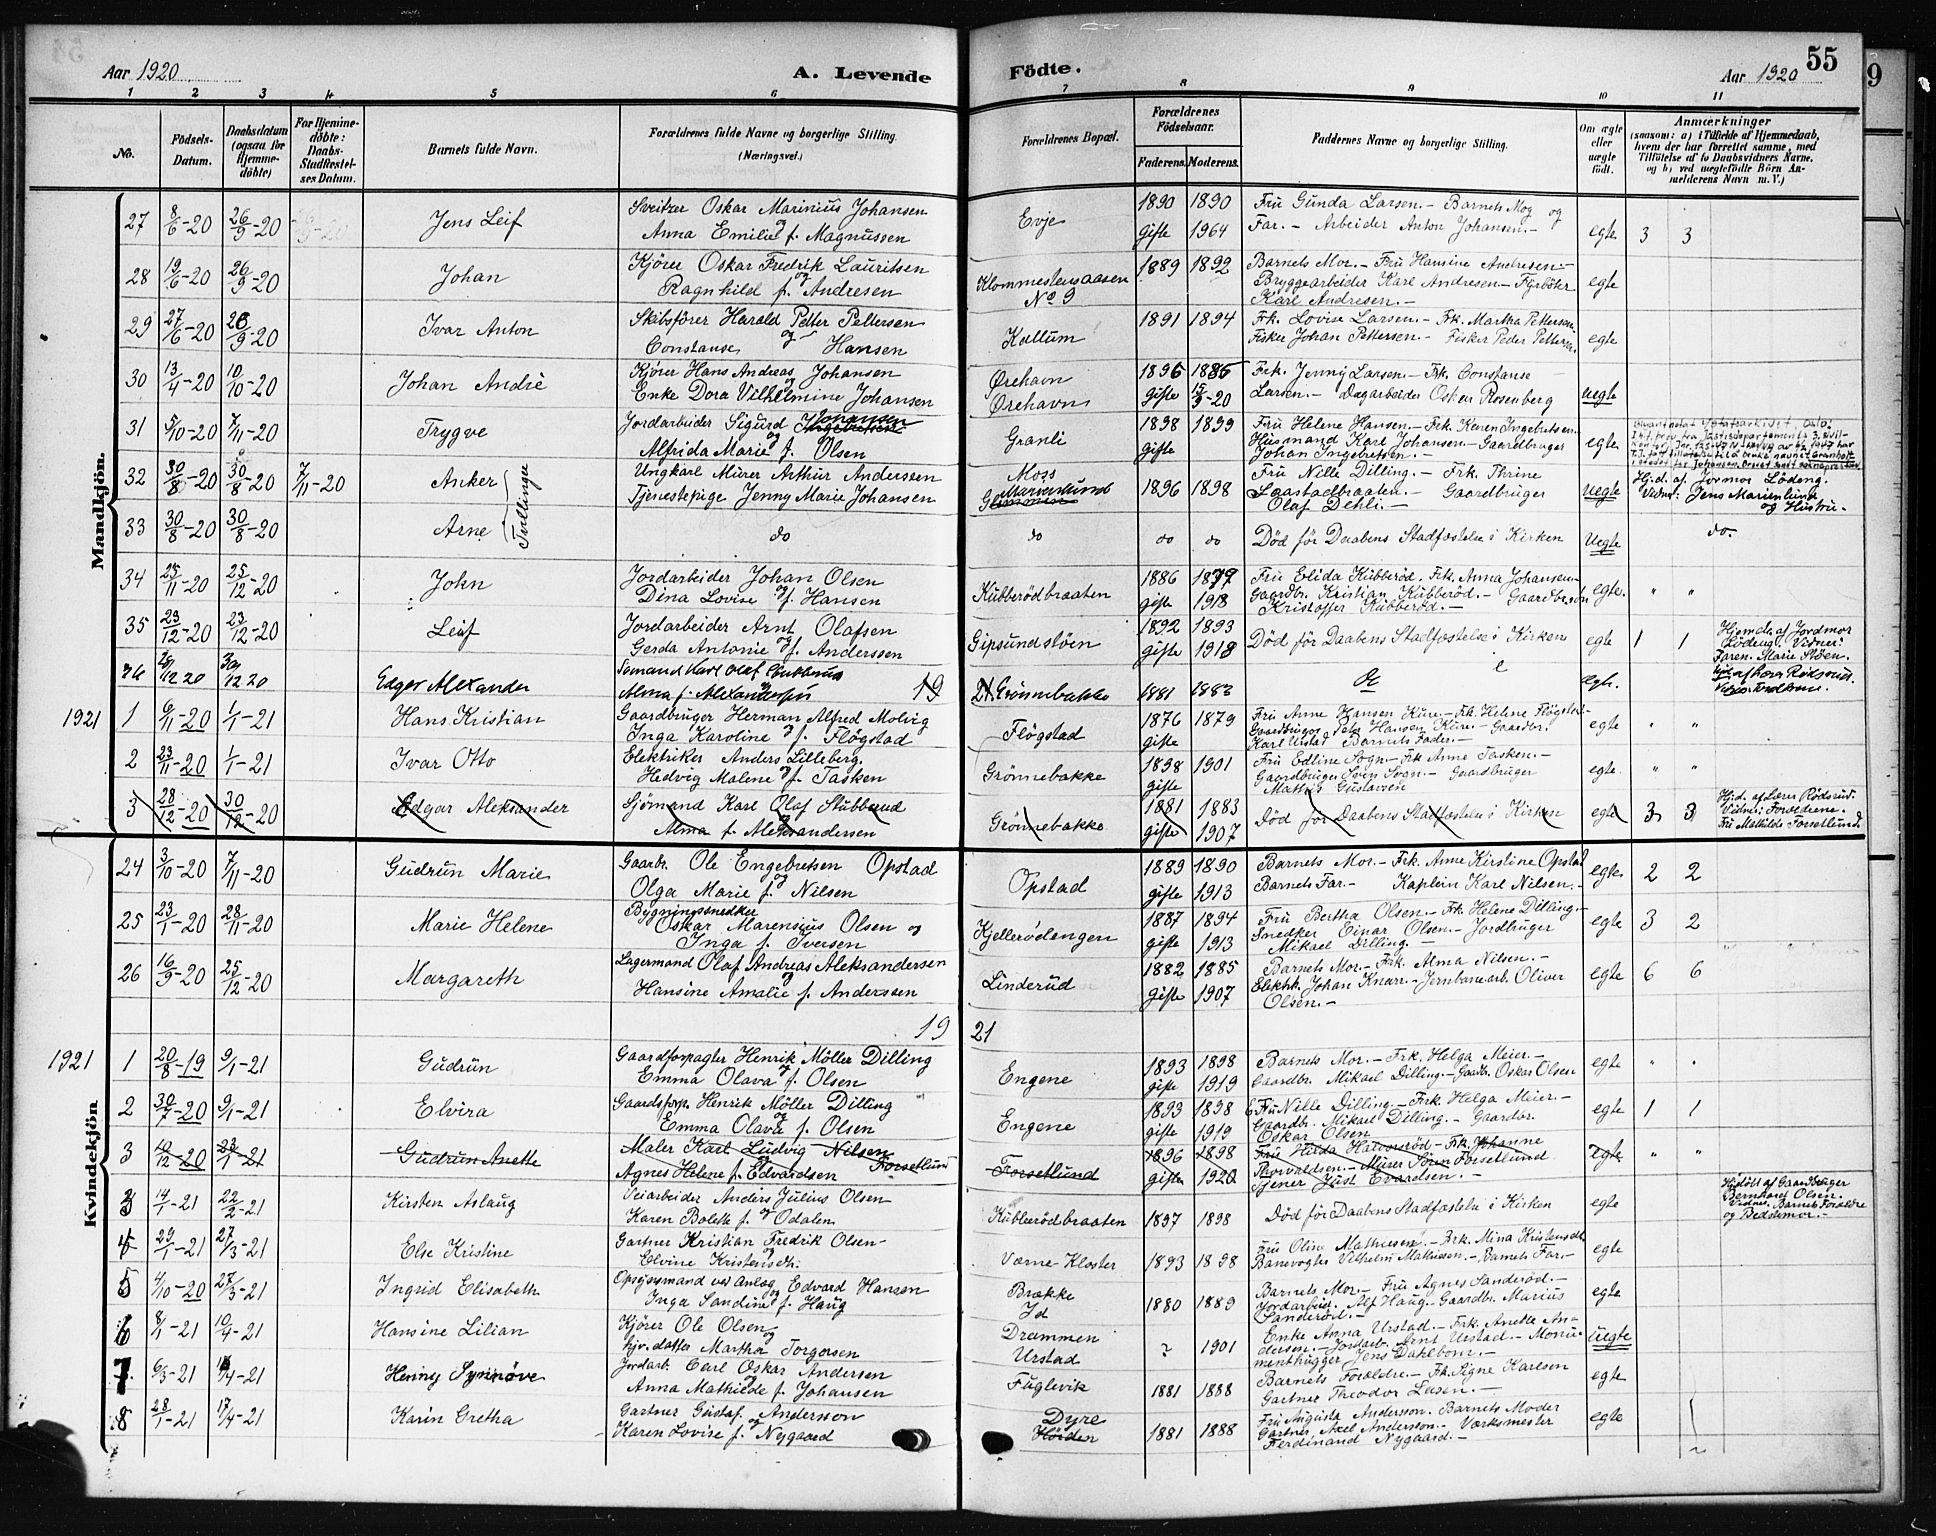 55
9
Aar 1920
A. Levende
Födte.
Aar 1920
1 2 3 4 5 6 7 8 9 10 11
No.
Födsels-
Datum.
Daabsdatum
(ogsaa for
Hjemme-
döbte)
For Hjemme-
döbte:
Daabs-
Stadfæstel-
ses Datum.
Barnets fulde Navn.
Forældrenes fulde Navne og borgerlige Stilling.
(Næringsvei.)
Forældrenes Bopæl.
Forældrenes
Födselsaar.
Faderens.
Moderens.
Faddernes Navne og borgerlige Stilling.
Om ægte
eller
uægte
födt.
Anmærkninger
(saasom: a) i Tilfælde af Hjemmedaab,
hvem der har forrettet samme, med
Tilföielse af to Daabsvidners Navne,
og b) ved uægtefödte Börn An-
melderens Navn m. V.)
Mandkjön.
27 8/6-20 26/9-20 Jens Leif
Sveitzer Oskar Marinius Johansen
Anna Emilie f. Magnussen
Evje
1890 1890
gifte 1964
Fru Gunda Larsen.- Barnets Mog og
Far.- Arbeider Anton Johansen.-
egte 3 3
28 19/6-20 26/9-20 Johan
Kjörer Oskar Fredrik Lauritsen
og
Ragnhild f. Andresen
Klommestensaasen
No 9
1889 1892
Barnets Mor.- Fru Hansine Andresen-
Bryggearbeider Karl Andresen- Fyrböter
Karl Andresen.-
egte
29 27/6-20 26/9-20 Ivar Anton
Skibsförer Harald Petter Pettersen
og
Constanse Hansen
Kallum
1891 1894
Frk. Lovise Larsen.- Frk. Martha Pettersen.
Fisker Johan Pettersen- Fisker Peder Pettersen
egte
30 13/4-20 10/10-20 Johan Andrè
Kjörer Hans Andreas Johansen
og
Enke Dora Vilhelmine Johansen
Ørehavn
Ørehavn
1896 1885
gifte 15/9-20
Frk. Jenny Larsen.- Frk. Constanse
Larsen.- Dagarbeider Oskar Rosenberg
uegte
31 5/10-20 7/11-20 Trygve
Jordarbeider Sigurd Johansen
og
Alfrida Marie f. Olsen
Granli
1898 1899
gifte
Fru Helene Hansen- Frk. Karen Ingebretsen
Husmand Karl Johansen- Gaardbruger
Johan Ingebretsen.-
egte
32 30/8-20 30/8-20 7/11-20 Anker
Tvillinger
Ungkarl Murer Arthur Anderssen
Tjenestepige Jenny Marie Johansen
Moss
Marienlund
1896 1898
Fru Nille Dilling.- Frk. Thrine
Saastadbraaten.- Gaardbruger
Olaf Dehli.-
Uegte
Hj.d. af Jormor Lödeng.
Vidner: Jens Marienlund
og Hustru.-
33 30/8-20 30/8-20 Arne
do
do
do do
Död för Daabens Stadfæstelse i Kirken
Uegte
do.
34 25/11-20 25/12-20 John
Jordarbeider Johan Olsen
og
Dina Lovise f. Hansen
Kubberödbraaten
1886 1879
gifte 1918
Fru Elida Kubberöd. Frk. Anna Johansen-
Gaardbr. Kristian Kubberöd.- Gaardbr.sön
Kristoffer Kubberöd.-
egte. " "
35 23/12-20 23/12-20 Leif
Jordarbeider Arnt Olafsen
og
Gerda Antonie f. Anderssen
Gipsundstöen
1892 1893
gifte 1918
Död för Daabens Stadfæstelse i Kirken
egte 1 1
Hjemdb. af Jordmor
Lödeng. Vidner:
Faren. Marie Stöen.
36 28/12 20 30/12 20 Edgar Alexander
Sömand Karl Olaf Stubberud
Alma f. Alexandersen
19
21. Grönnebakke
1881 1883
egte.
1921
1 6/11-20 1/1-21 Hans Kristian
Gaardbruger Herman Alfred Molvig
og
Inga Karoline f. Flögstad
Flögstad
1876 1879
gifte
Fru Anne Hansen Kure- Frk. Helene Flögstad-
Gaardbruger Peter Hansen Kure- Gaardbr.
Karl Urstad Barnets Fader.-
egte " "
2 23/11-20 1/1-21 Ivar Otto
Elektriker Anders Lilleberg.
og
Hedvig Malene f. Tasken
Grönnebakke
1898 1901
gifte
Fru Edline Sogn- Frk Anne Tasken.-
Gaardbruger Sven Sogn- Gaardbruger
Mathis Gustavsen
egte. " "
3 28/12-20 30/12-20 Edgar Aleksander
Sjömand Karl Olaf Stubberud
og
Alma f. Aleksandersen
Grönnebakke
1881 1883
gifte 1907
Död för Daabens Stadfæstelse i Kirken
egte 3 3
Hj.d. af Lærer Röderud.
Vidner: Forældrene.
Fru Mathilde Forsetlund.
Kvindekjön
24 3/10-20 7/11-20 Gudrun Marie
Gaarbr. Ole Engebretsen Opstad
og
Olga Marie f. Nilsen
Opstad
1889 1890
gifte 1913
Barnets Mor.- Frk. Anne Kirstine Opstad
Barnets Far- Kaptein Karl Nilsen.-
egte 2 2
25 23/1-20 28/11-20 Marie Helene
Bygningssnedker
Oskar Marensius Olsen og
Inga f. Iversen
Kjellerödengen
1887 1894
gifte 1913
Fru Bertha Olsen- Frk. Helene Dilling.-
Snedker Einar Olsen- Jordbruger
Mikael Dilling.-
egte 3 2
26 16/9-20 25/12-20 Margareth
Lagermand Olaf Andreas Aleksandersen
Hansine Amalie f. Anderssen
Linderud
1882 1885
Gifte 1907
Barnets Mor- Frk. Alma Nilsen.-
Elektrk. Johan Knarr- Jernbanearb. Oliver
Olsen.-
egte 6 6
19 21
1921
1 20/8-19 9/1-21 Gudrun
Gaardforpagter Henrik Möller Dilling
og
Emma Olava f. Olsen
Engene
1893 1898
gifte 1919
Barnets Mor.- Frk. Helga Meier.-
Gaardbr. Mikael Dilling- Gaardbr. Oskar Olsen
egte " "
2 30/7-20 9/1-21 Elvira
Gaardsforp. Henrik Möller Dilling
og
Emma Olava f. Olsen
Engene
1893 1898
gifte 1919
Fru Nille Dilling- Frk. Helga Meier-
Gaardb. Mikael Dilling.- Gaardbr.
Oskar Olsen
egte 1 1
3 10/12-20 23/1-21 Gudrun Anette
Maler Karl Ludvig Nilsen
Forsetlund
Agnes Helene f. Edvardsen
Forsetlund
1896 1898
gifte 1920
Fru Hilda Halvorsröd- Frk. Johanne
Thorvaldsen.- Murer Sören Forsetlund
Tjener Just Evardsen.-
egte " "
3 14/1-21 22/2-21 Kirsten Aslaug
Veiarbeider Anders Julius Olsen
og
Karen Bolette f. Odalen
Kubberödbraaten
1897 1898
Död för Daabens Stadfæstelse i Kirken
egte
Hjdöbt af Gaardbruger
Bernhard Olsen.
Vidner: Barnets Forældre
og Bedstemor.-
4 29/1-21 27/3-21 Else Kristine
Gartner Kristian Fredrik Olsen-
og
Elvine Kristensdtr.
Værne Kloster
1893 1898
Fru Olina Mathiesen.- Frk. Mina Kristensdtr.
Banevogter Vilhelm Mathiesen.- Barnets Far.-
egte
5 4/10-20 27/3-21 Ingrid Elisabeth
Opsynsmand ved Anlæg Edvard Hansen
og
Inga Sandine f. Haug
Brække
Id
1880 1889
Barnets Mor- Fru Agnes Sanderöd.-
Jordarbeid. Alf Haug- Gaardbr. Marius
Sanderöd.-
egte
6 8/1-21 10/4-21 Hansine Lilian
Kjörer Ole Olsen
og
hjv. datter Martha Torgersen
Drammen
Urstad
? 1901
Enke Anna Urstad.- Frk. Anette An-
dersen.- Jordarb. Arnt Urstad- Monu-
menthugger Jens Dahlbom.-
Uegte
7 6/3-21 /4-21 Henny Synnöve
Jordarb. Carl Oskar Andersen
og
Anna Mathilde f. Johansen
Fuglevik
1881 1888
Barnets Forældre.- Frk. Signe Karlsen
Gartner Theodor Lasen.-
egte
8 28/1-21 17/4-21 Karin Gretha
Gartner Gustaf Andersson
og
Karen Lovise f. Nygaard
Dyre
1881 1888
Fru Augusta Anderson. Barnets Moder
Gartner Axel Anderson.- Værksmester
Ferdinand Nygaard.-
egte